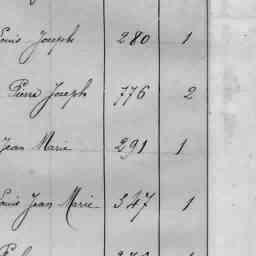 Louis Joseph 280 1
Pierre Joseph 776 2
Jean Marie 291 1
Louis Jean Marie 347 1